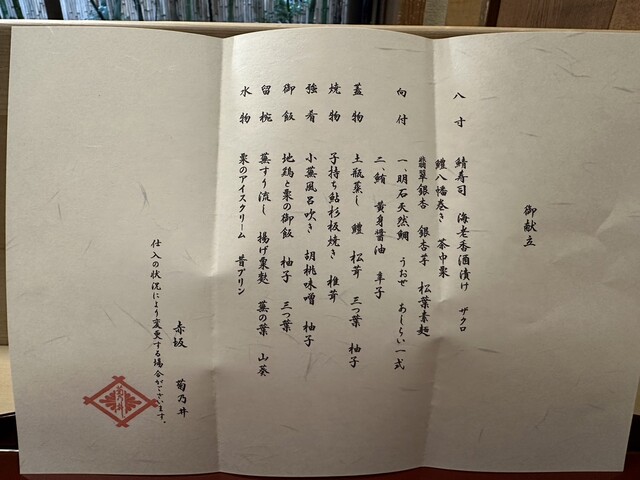 御献立
八寸　鯖寿司　海老香酒漬け　ザクロ
鱧八幡巻き　茶巾栗
翡翠銀杏　銀杏芋　松葉素麺
向付　一、明石天然鯛　うおぜ　あしらい一式
二、鮪　黄身醤油　辛子
蓋物　土瓶蒸し　鱧　松茸　三つ葉　柚子
焼物　子持ち鮎杉板焼き　椎茸
強肴　小蕪風呂吹き　胡桃味噌　柚子
御飯　地鶏と栗の御飯　柚子　三つ葉
留椀　蕪すり流し　揚げ粟麩　蕪の葉　山葵
水物　栗のアイスクリーム　昔プリン
赤坂　菊乃井
仕入の状況により変更する場合がございます。